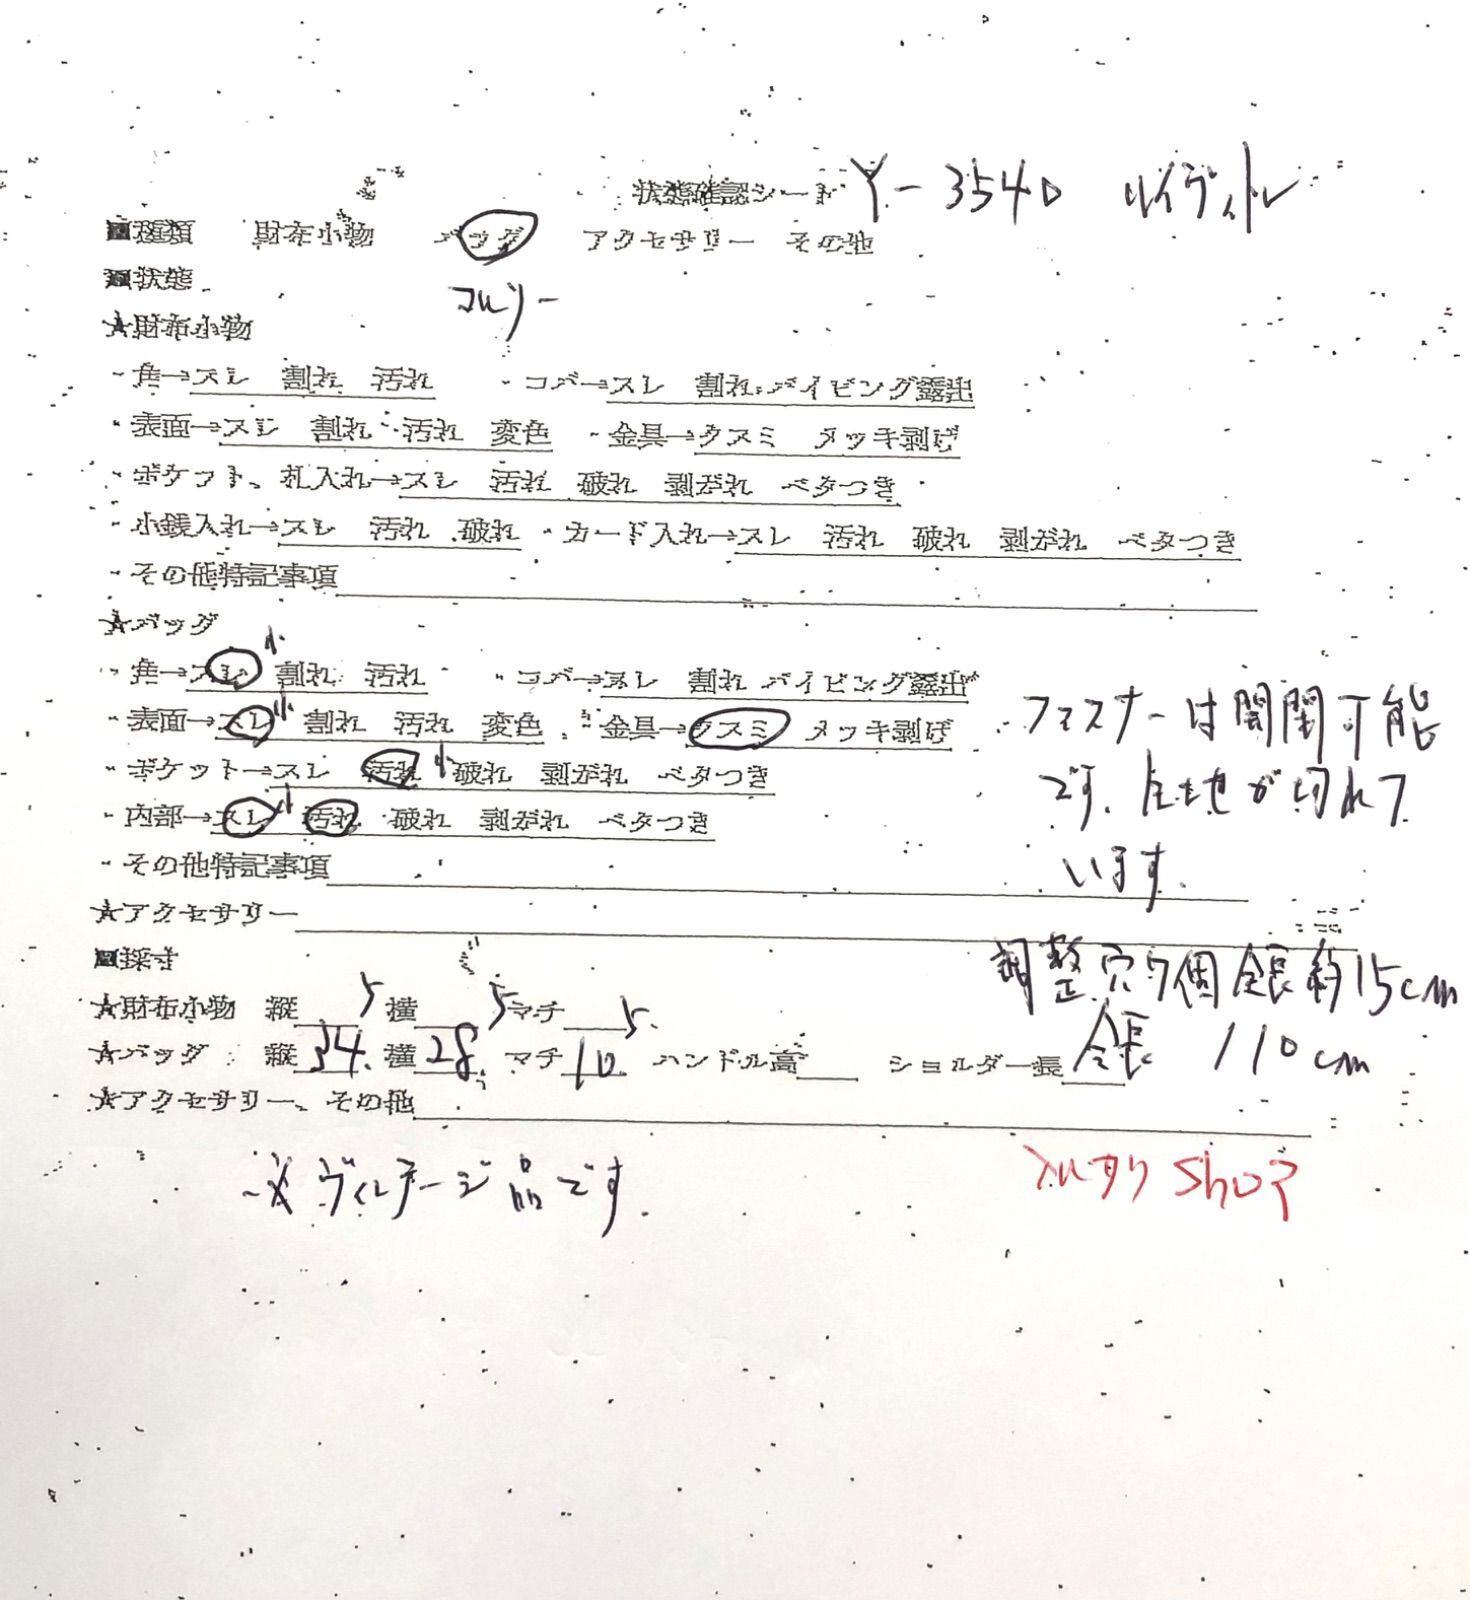 状態確認シート Y-3540 ルイヴィトン
■種類 財布小物 バッグ アクセサリー その他
■状態
★財布小物
・角→スレ 割れ 汚れ ・コバ→スレ 割れ パイピング露出
・表面→スレ 割れ 汚れ 変色 ・金具→クスミ メッキ剥げ
・ポケット、札入れ→スレ 汚れ 破れ 剥がれ ベタつき
・小銭入れ→スレ 汚れ 破れ ・カード入れ→スレ 汚れ 破れ 剥がれ ベタつき
・その他特記事項
★バッグ
・角→スレ小 割れ 汚れ ・コバ→スレ 割れ パイピング露出
・表面→スレ小 割れ 汚れ 変色 ・金具→クスミ メッキ剥げ
・ポケット→スレ 汚れ小 破れ 剥がれ ベタつき
・内部→スレ小 汚れ 破れ 剥がれ ベタつき
・その他特記事項
ファスナーは開閉可能
です。生地が切れて
います。
★アクセサリー
■採寸
調整穴 個 全長約15cm
★財布小物 縦 横 マチ
★バッグ 縦34 横28 マチ10 ハンドル高 ショルダー長 全長 110cm
★アクセサリー、その他
※ヴィンテージ品です。
shop